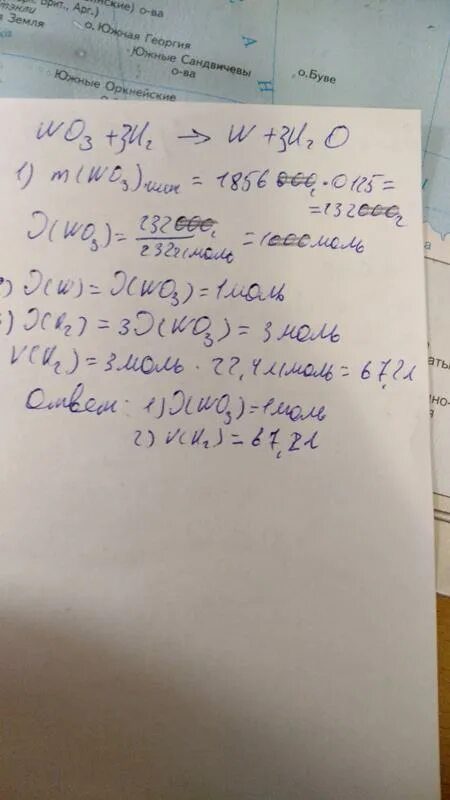 инские) о-ва
Брит., Арг.)
о. Южная Георгия
Земля
Южные Сандвичевы
о-ва
о. Буве
Южные Оркнейские
А
Н
WO₃ + 3H₂ → W + 3H₂O
1) m(WO₃)чист = 1856 000г · 0,125 =
= 232000г
ν(WO₃) = 232000г / 232г/моль = 1000 моль
2) ν(W) = ν(WO₃) = 1 моль
3) ν(H₂) = 3ν(WO₃) = 3 моль
V(H₂) = 3 моль · 22,4 л/моль = 67,2л
Ответ: 1) ν(WO₃) = 1 моль
2) V(H₂) = 67,2л